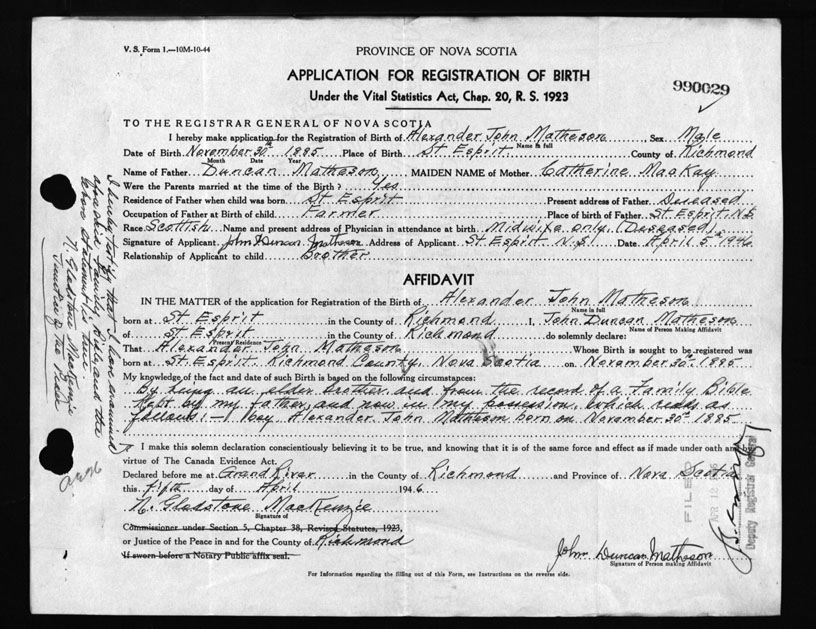 V. S. Form 1.—10M-10-44
PROVINCE OF NOVA SCOTIA
APPLICATION FOR REGISTRATION OF BIRTH
Under the Vital Statistics Act, Chap. 20, R. S. 1923
990029
TO THE REGISTRAR GENERAL OF NOVA SCOTIA
I hereby make application for the Registration of Birth of Alexander John Matheson Sex Male
Name in full
Date of Birth November 30th 1885 Place of Birth St Esprit. County of Richmond
Month Date Year
Name of Father Duncan Matheson MAIDEN NAME of Mother Catherine MacKay
Were the Parents married at the time of the Birth? Yes
Residence of Father when child was born St Esprit Present address of Father Deseased
Occupation of Father at Birth of child Farmer Place of birth of Father St. Esprit N.S
Race Scottish Name and present address of Physician in attendance at birth Midwife only. (Deseased)
Signature of Applicant John Duncan Matheson Address of Applicant St Esprit N.S. Date April 5th 1946
Relationship of Applicant to child Brother
AFFIDAVIT
IN THE MATTER of the application for Registration of the Birth of Alexander John Matheson
Name in full
born at St Esprit in the County of Richmond I, John Duncan Matheson
Name of Person Making Affidavit
of St Esprit in the County of Richmond do solemnly declare:
Present Residence
That Alexander John Matheson Whose Birth is sought to be registered was
born at St. Esprit. Richmond County, Nova Scotia on November 30th 1885
My knowledge of the fact and date of such Birth is based on the following circumstances:
By being an elder brother and from the record of a Family Bible
Kept by my father, and now in my possession, which reads as
follows:— 1 boy Alexander John Matheson born on November 30th 1885.
I make this solemn declaration conscientiously believing it to be true, and knowing that it is of the same force and effect as if made under oath and by
virtue of The Canada Evidence Act.
Declared before me at Grand River in the County of Richmond and Province of Nova Scotia
this Fifth day of April 1946
N. Gladstone MacKenzie
Signature of
Commissioner under Section 5, Chapter 38, Revised Statutes, 1923,
or Justice of the Peace in and for the County of Richmond
If sworn before a Notary Public affix seal.
John Duncan Matheson
Signature of Person making Affidavit
For Information regarding the filling out of this Form, see Instructions on the reverse side.
I hereby testify that I have examined
aforesaid Family Bible and the
above statement is true
N. Gladstone MacKenzie
Justice of the Peace
FILED
12
Deputy Registrar General